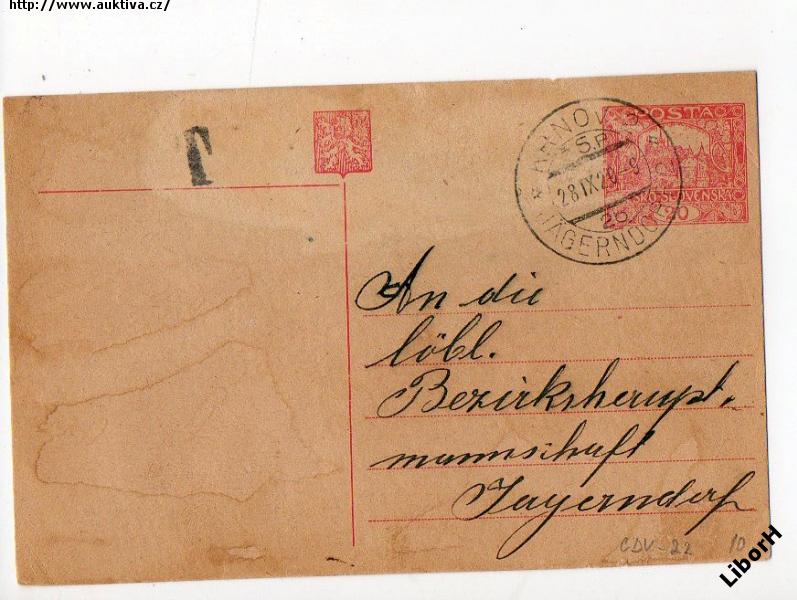 http://www.auktiva.cz/
T
POŠTA
ČESKO-SLOVENSKÁ
20
KRNOV 3
S.P.
28 IX 20-9
JÄGERNDORF
An die
löbl.
Bezirkshaupt-
mannschaft
Jägerndorf
CDV-22 10
LiborH